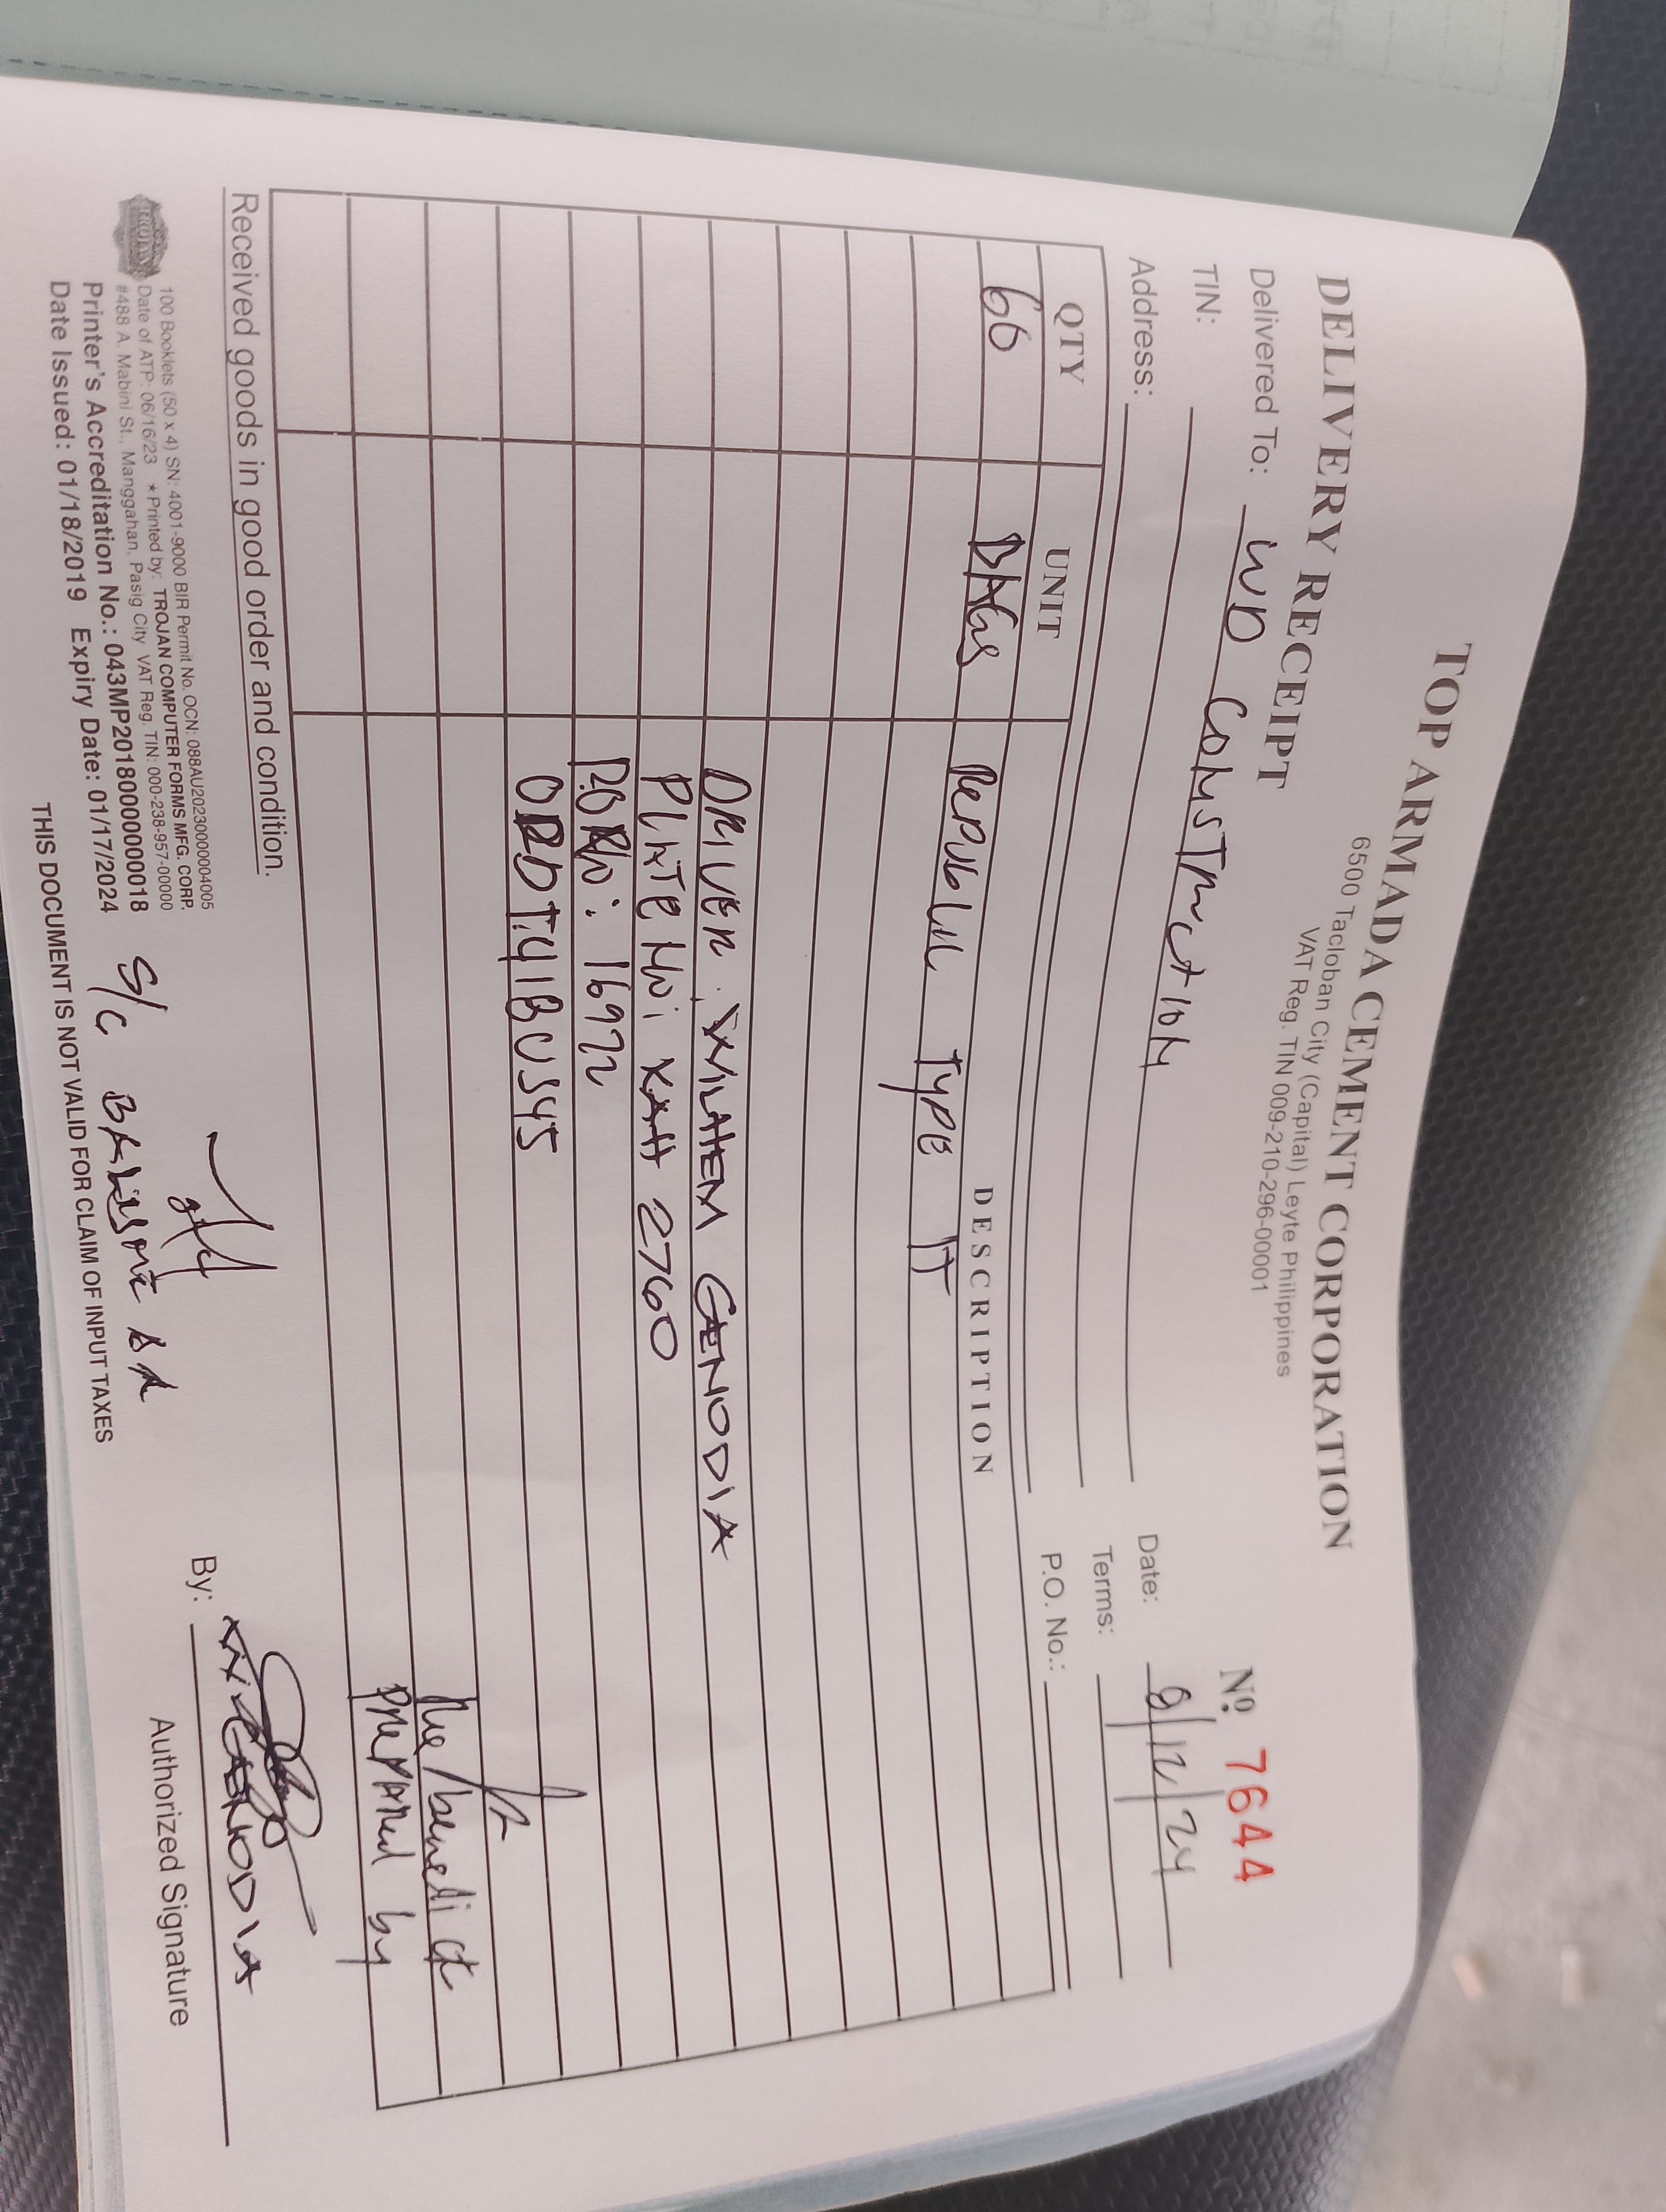 TOP ARMADA CEMENT CORPORATION
6500 Tacloban City (Capital) Leyte Philippines
VAT Reg. TIN 009-210-296-00001
DELIVERY RECEIPT
Nº 7644
Delivered To: WD CONSTRUCTION
Date: 8/12/24
TIN:
Terms:
Address:
P.O. No.:
QTY UNIT DESCRIPTION
60 BAGS REPUBLIC TYPE 1T
DRIVER: GENODIA
PLATE NO: KAH 2760
P.O NO: 16922
Mc/benedict
PREPARED by
Received goods in good order and condition.
100 Booklets (50 x 4) SN: 4001-9000 BIR Permit No. OCN: 088AU20230000004005
Date of ATP: 06/16/23 ★Printed by: TROJAN COMPUTER FORMS MFG. CORP.
#488 A. Mabini St., Manggahan, Pasig City VAT Reg. TIN: 000-238-957-00000
Printer's Accreditation No.: 043MP20180000000018
Date Issued: 01/18/2019 Expiry Date: 01/17/2024
TROJAN
S/C
THIS DOCUMENT IS NOT VALID FOR CLAIM OF INPUT TAXES
By:
Authorized Signature